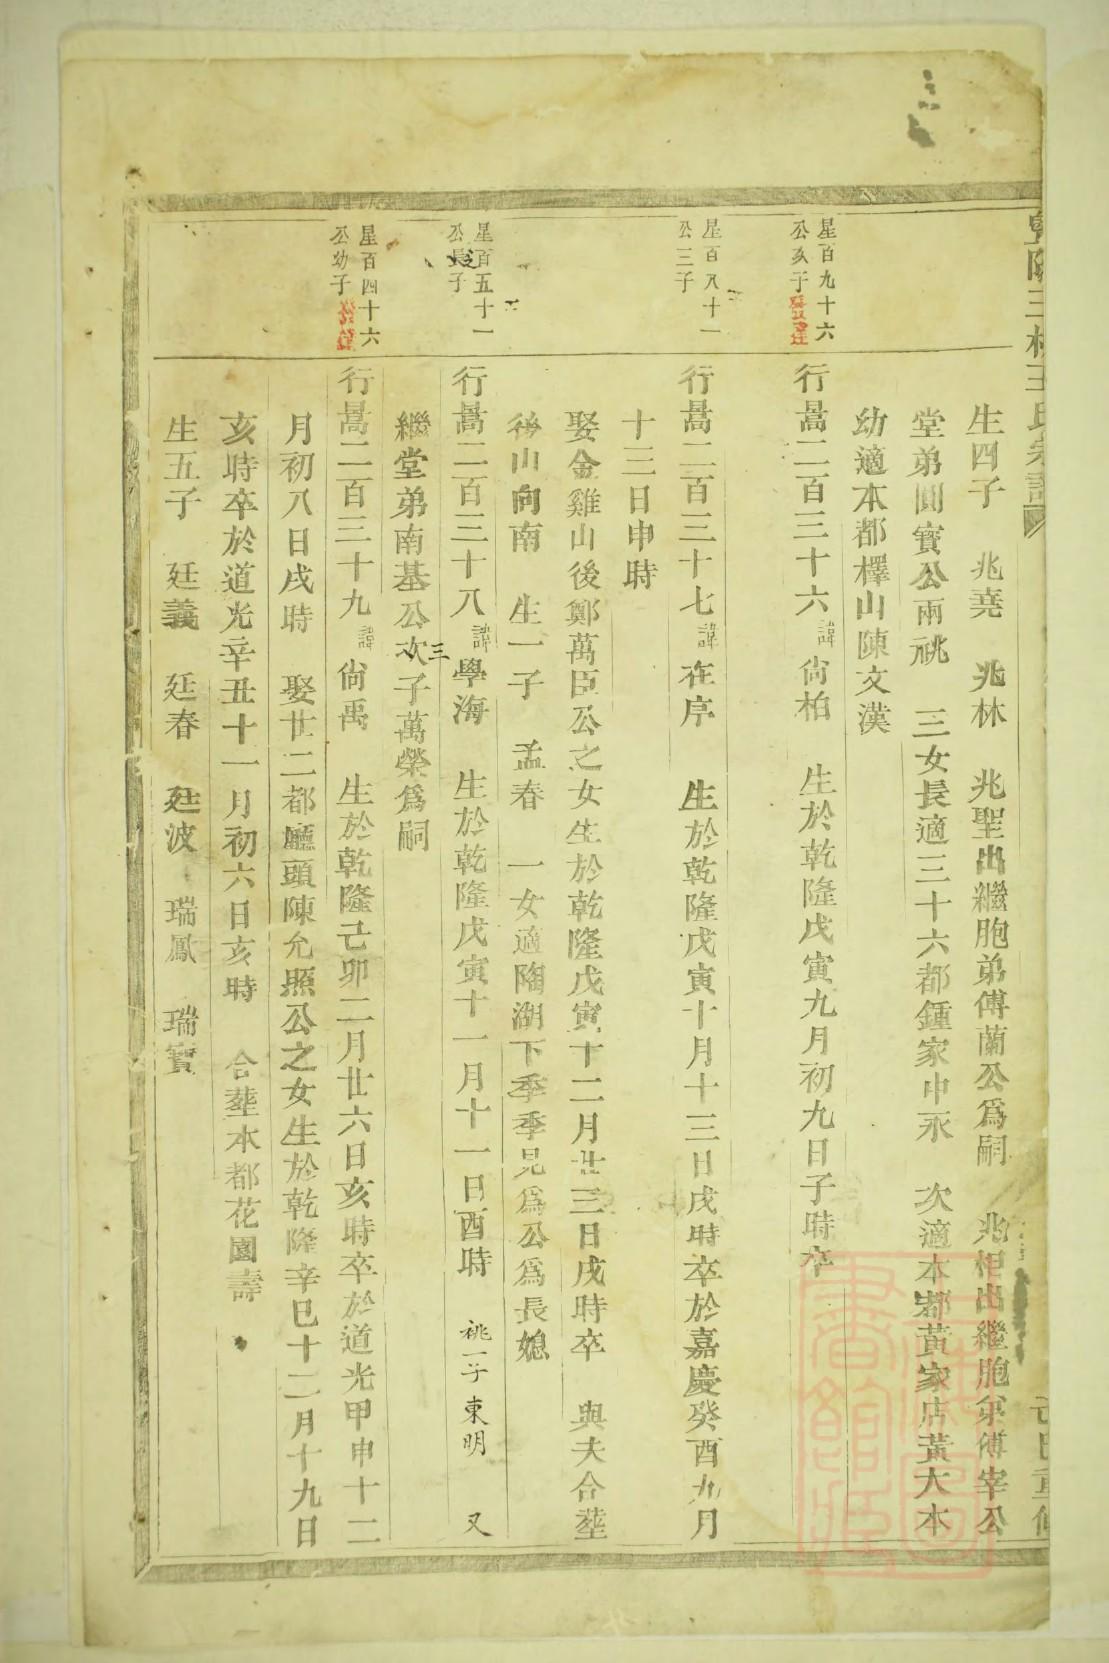 王氏宗譜
生四子 兆堯 兆林 兆聖出繼胞弟傅蘭公爲嗣 兆相出繼胞弟傅宰公
堂弟圓寶公兩祧 三女長適三十六都鍾家中永 次適本都黃家店黃大本
幼適本都檡山陳文漢
星百九十六
公次子
行暠二百三十六 諱 尙柏 生於乾隆戊寅九月初九日子時卒
星百八十一
公三子
行暠二百三十七 諱 在序 生於乾隆戊寅十月十三日戌時卒於嘉慶癸酉九月
十三日申時
娶金雞山後鄭萬臣公之女生於乾隆戊寅十二月廿三日戌時卒 與夫合塟
後山向南 生一子 孟春 一女適陶湖下季季見爲公爲長媳
星百五十一
公長子
行暠二百三十八 諱 學海 生於乾隆戊寅十一月十一日酉時 祧一子 東明 又
繼堂弟南基公次三子萬榮爲嗣
星百四十六
公幼子
行暠二百三十九 諱 尙禹 生於乾隆己卯二月廿六日亥時卒於道光甲申十二
月初八日戌時 娶廿二都廳頭陳允照公之女生於乾隆辛巳十二月十九日
亥時卒於道光辛丑十一月初六日亥時 合塟本都花園壽
生五子 廷義 廷春 廷波 瑞鳳 瑞寶